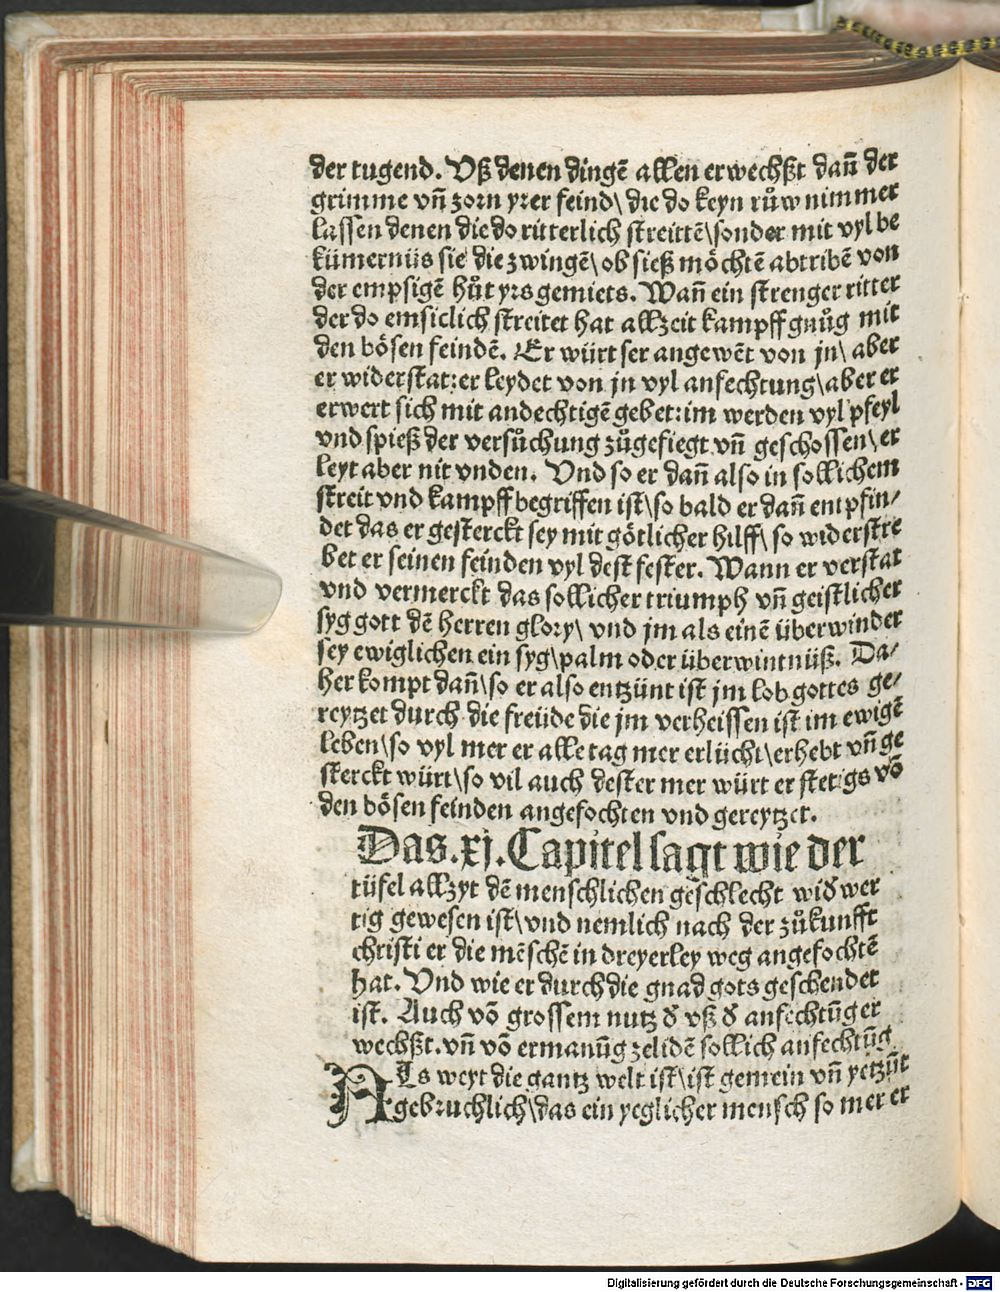 der tugend. Vß denen dingē allen erwechßt dañ der
grimme vñ zorn yrer feind\ die do keyn růw nimmer
lassen denen die do ritterlich streittē\sonder mit vyl be
kümernüs sie die zwingē\ob sieß möchtē abtribē von
der empsigē hůt yrs gemiets. Wañ ein strenger ritter
der do emsiclich streitet hat allzeit kampff gnůg mit
den bösen feindē. Er würt ser angewēt von jn\ aber
er widerstat: er leydet von jn vyl anfechtung\aber er
erwert sich mit andechtigē gebet: im werden vyl pfeyl
vnd spieß der versůchung zůgefiegt vñ geschossen\ er
leyt aber nit vnden. Vnd so er dañ also in sollichem
streit vnd kampff begriffen ist\so bald er dañ entpfin/
det das er gesterckt sey mit götlicher hilff\ so widerstre
bet er seinen feinden vyl dest fester. Wann er verstat
vnd vermerckt das sollicher triumph vñ geistlicher
syg gott dē herren glory\ vnd jm als einē überwinder
sey ewiglichen ein syg\palm oder überwintnüß. Da/
her kompt dañ\so er also entzünt ist jm lob gottes ge/
reytzet durch die freüde die jm verheissen ist im ewigē
leben\so vyl mer er alle tag mer erlücht\erhebt vñ ge
sterckt würt\so vil auch dester mer würt er stetigs vō
den bösen feinden angefochten vnd gereytzet.
Das .xj. Capitel sagt wie der
tüfel allzyt dē menschlichen geschlecht wid̕ wer
tig gewesen ist\vnd nemlich nach der zůkunfft
christi er die mēschē in dreyerley weg angefochtē
hat. Vnd wie er durch die gnad gots geschendet
ist. Auch vō grossem nutz d̕ vß d̕ anfechtūg er
wechßt. vñ vō ermanūg ze lidē sollich anfechtūg
Als weyt die gantz welt ist\ist gemein vñ yetzūt
gebruchlich\das ein yeglicher mensch so mer er
Digitalisierung gefördert durch die Deutsche Forschungsgemeinschaft - DFG